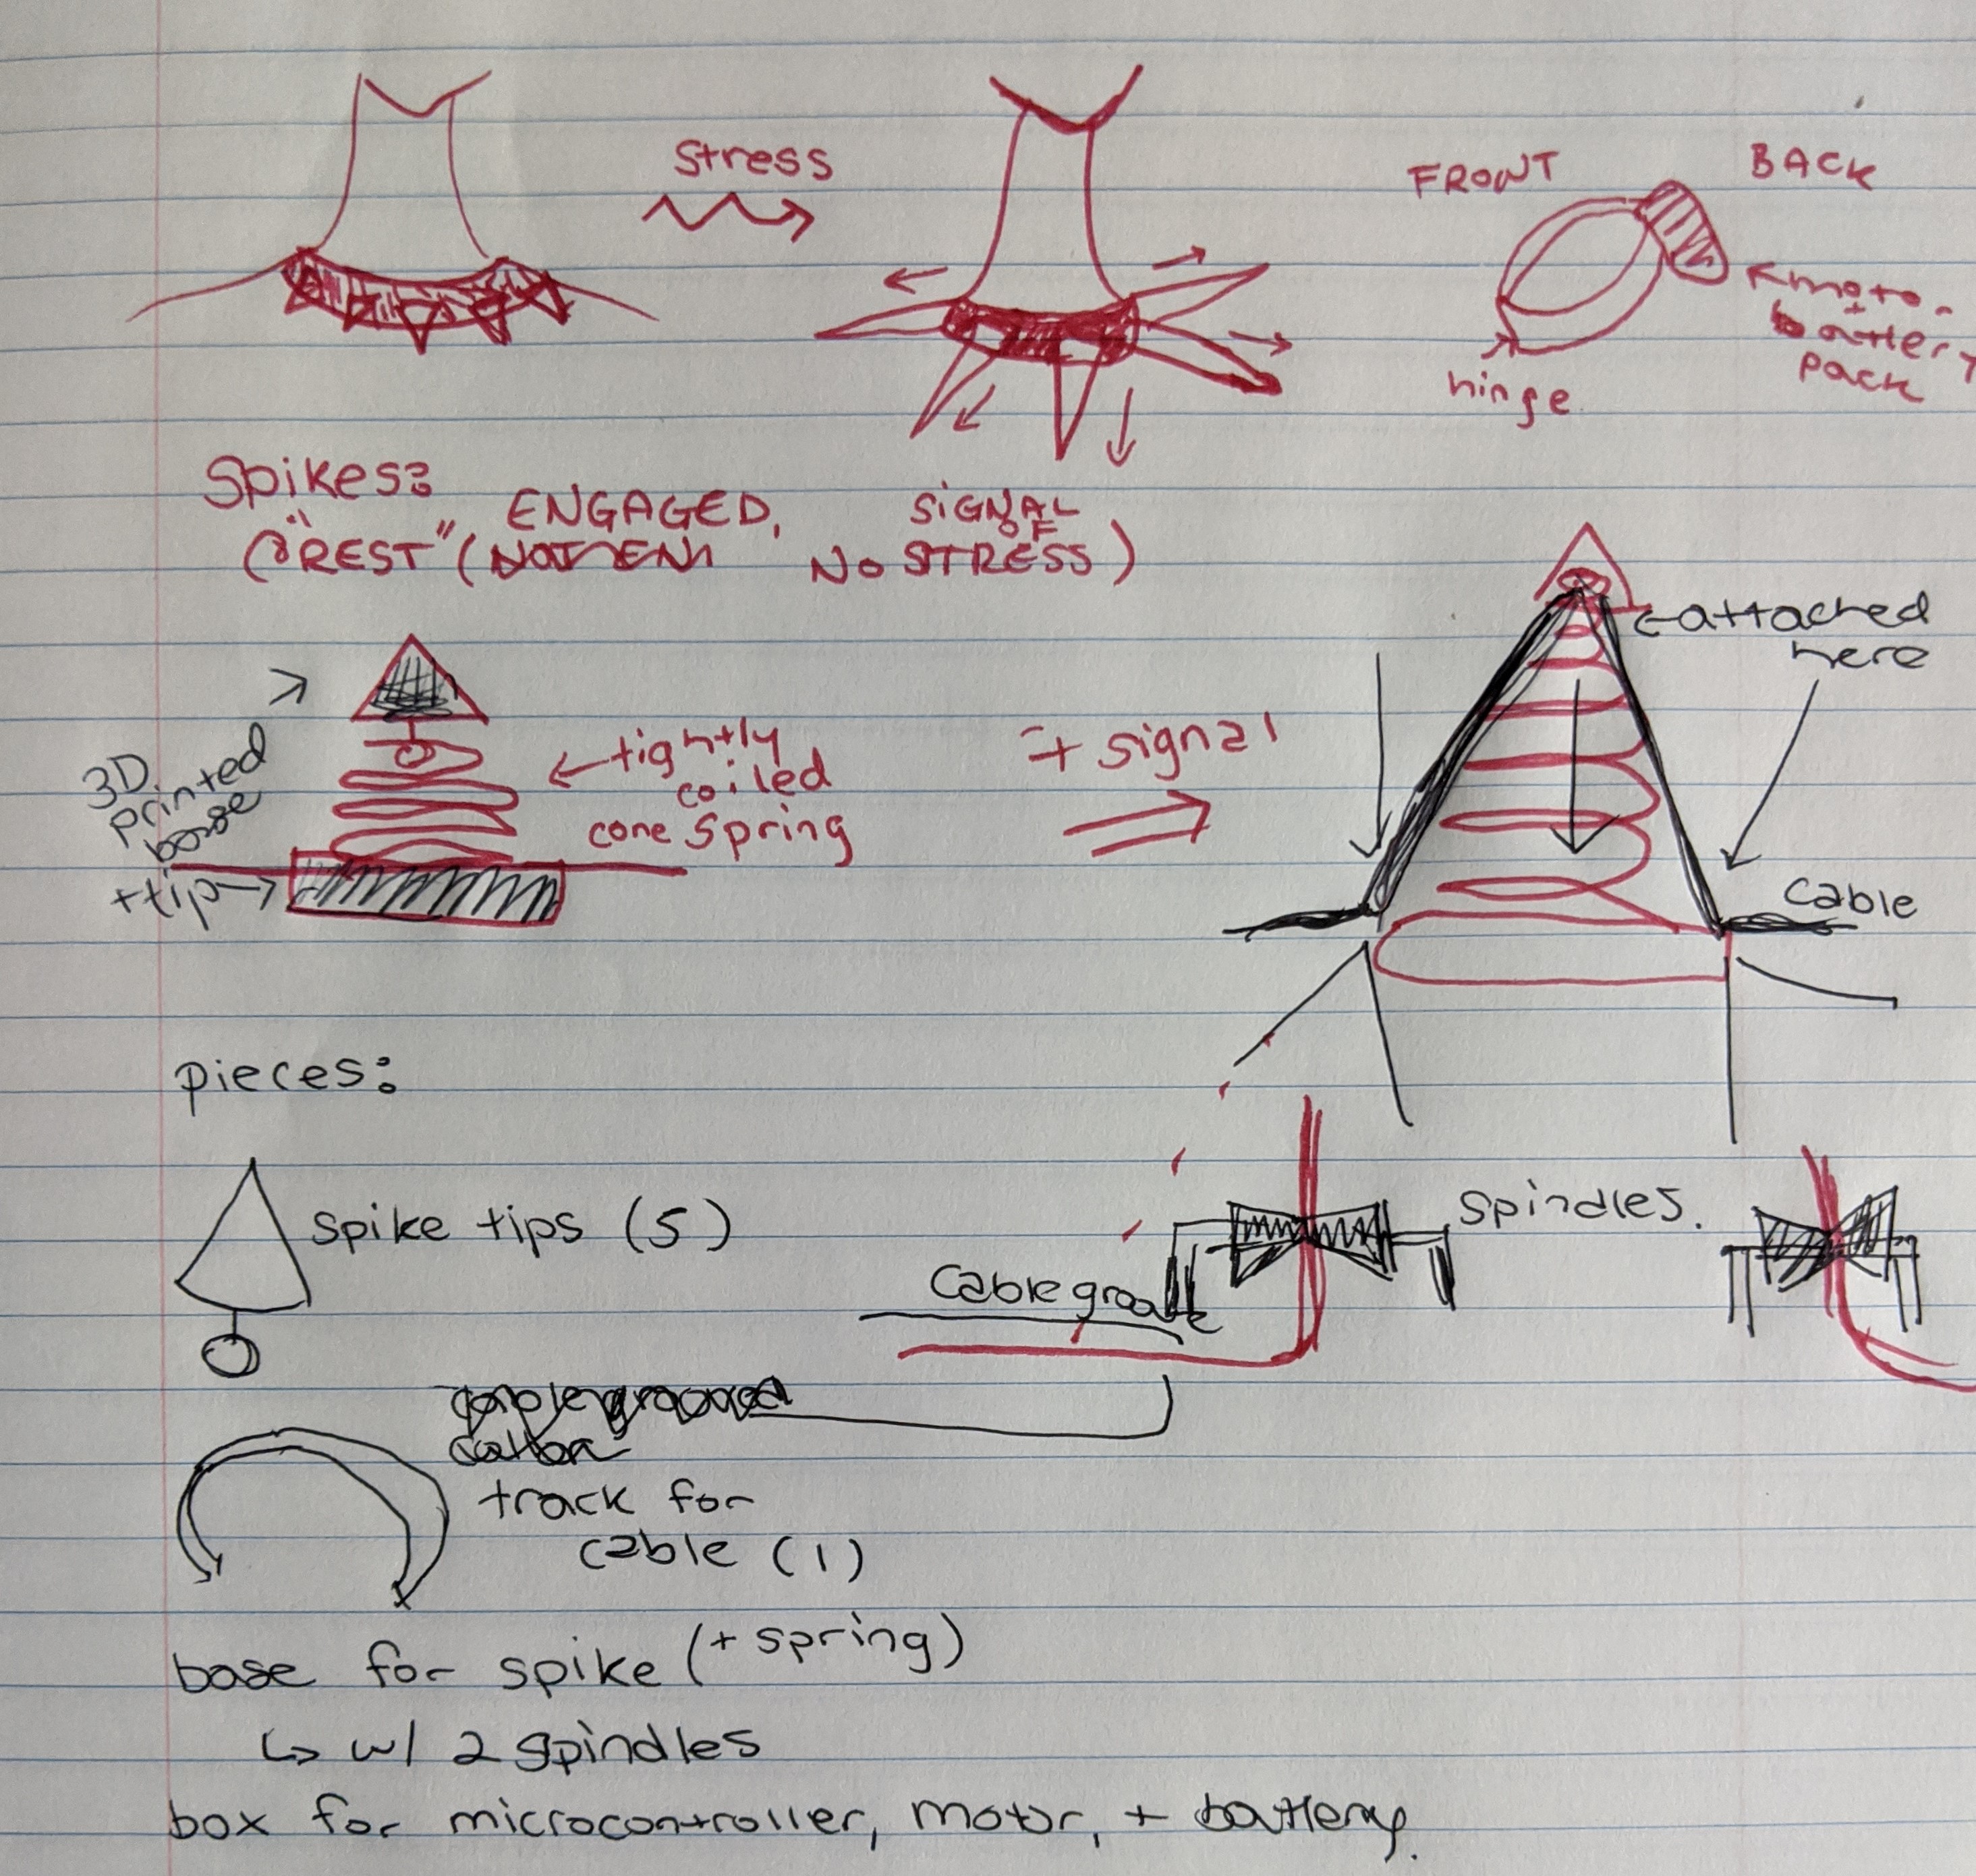 stress
FRONT
BACK
moto-
+
battery
pack
hinge
Spikes:
"REST" (
ENGAGED,
SIGNAL
OF
NO STRESS)
attached
here
3D
printed
base
+ tip
tightly
coiled
cone spring
+ signal
cable
pieces:
spike tips (5)
spindles.
cable groove
track for
cable (1)
base for spike (+ spring)
↳ w/ 2 spindles
box for microcontroller, motor, + battery.